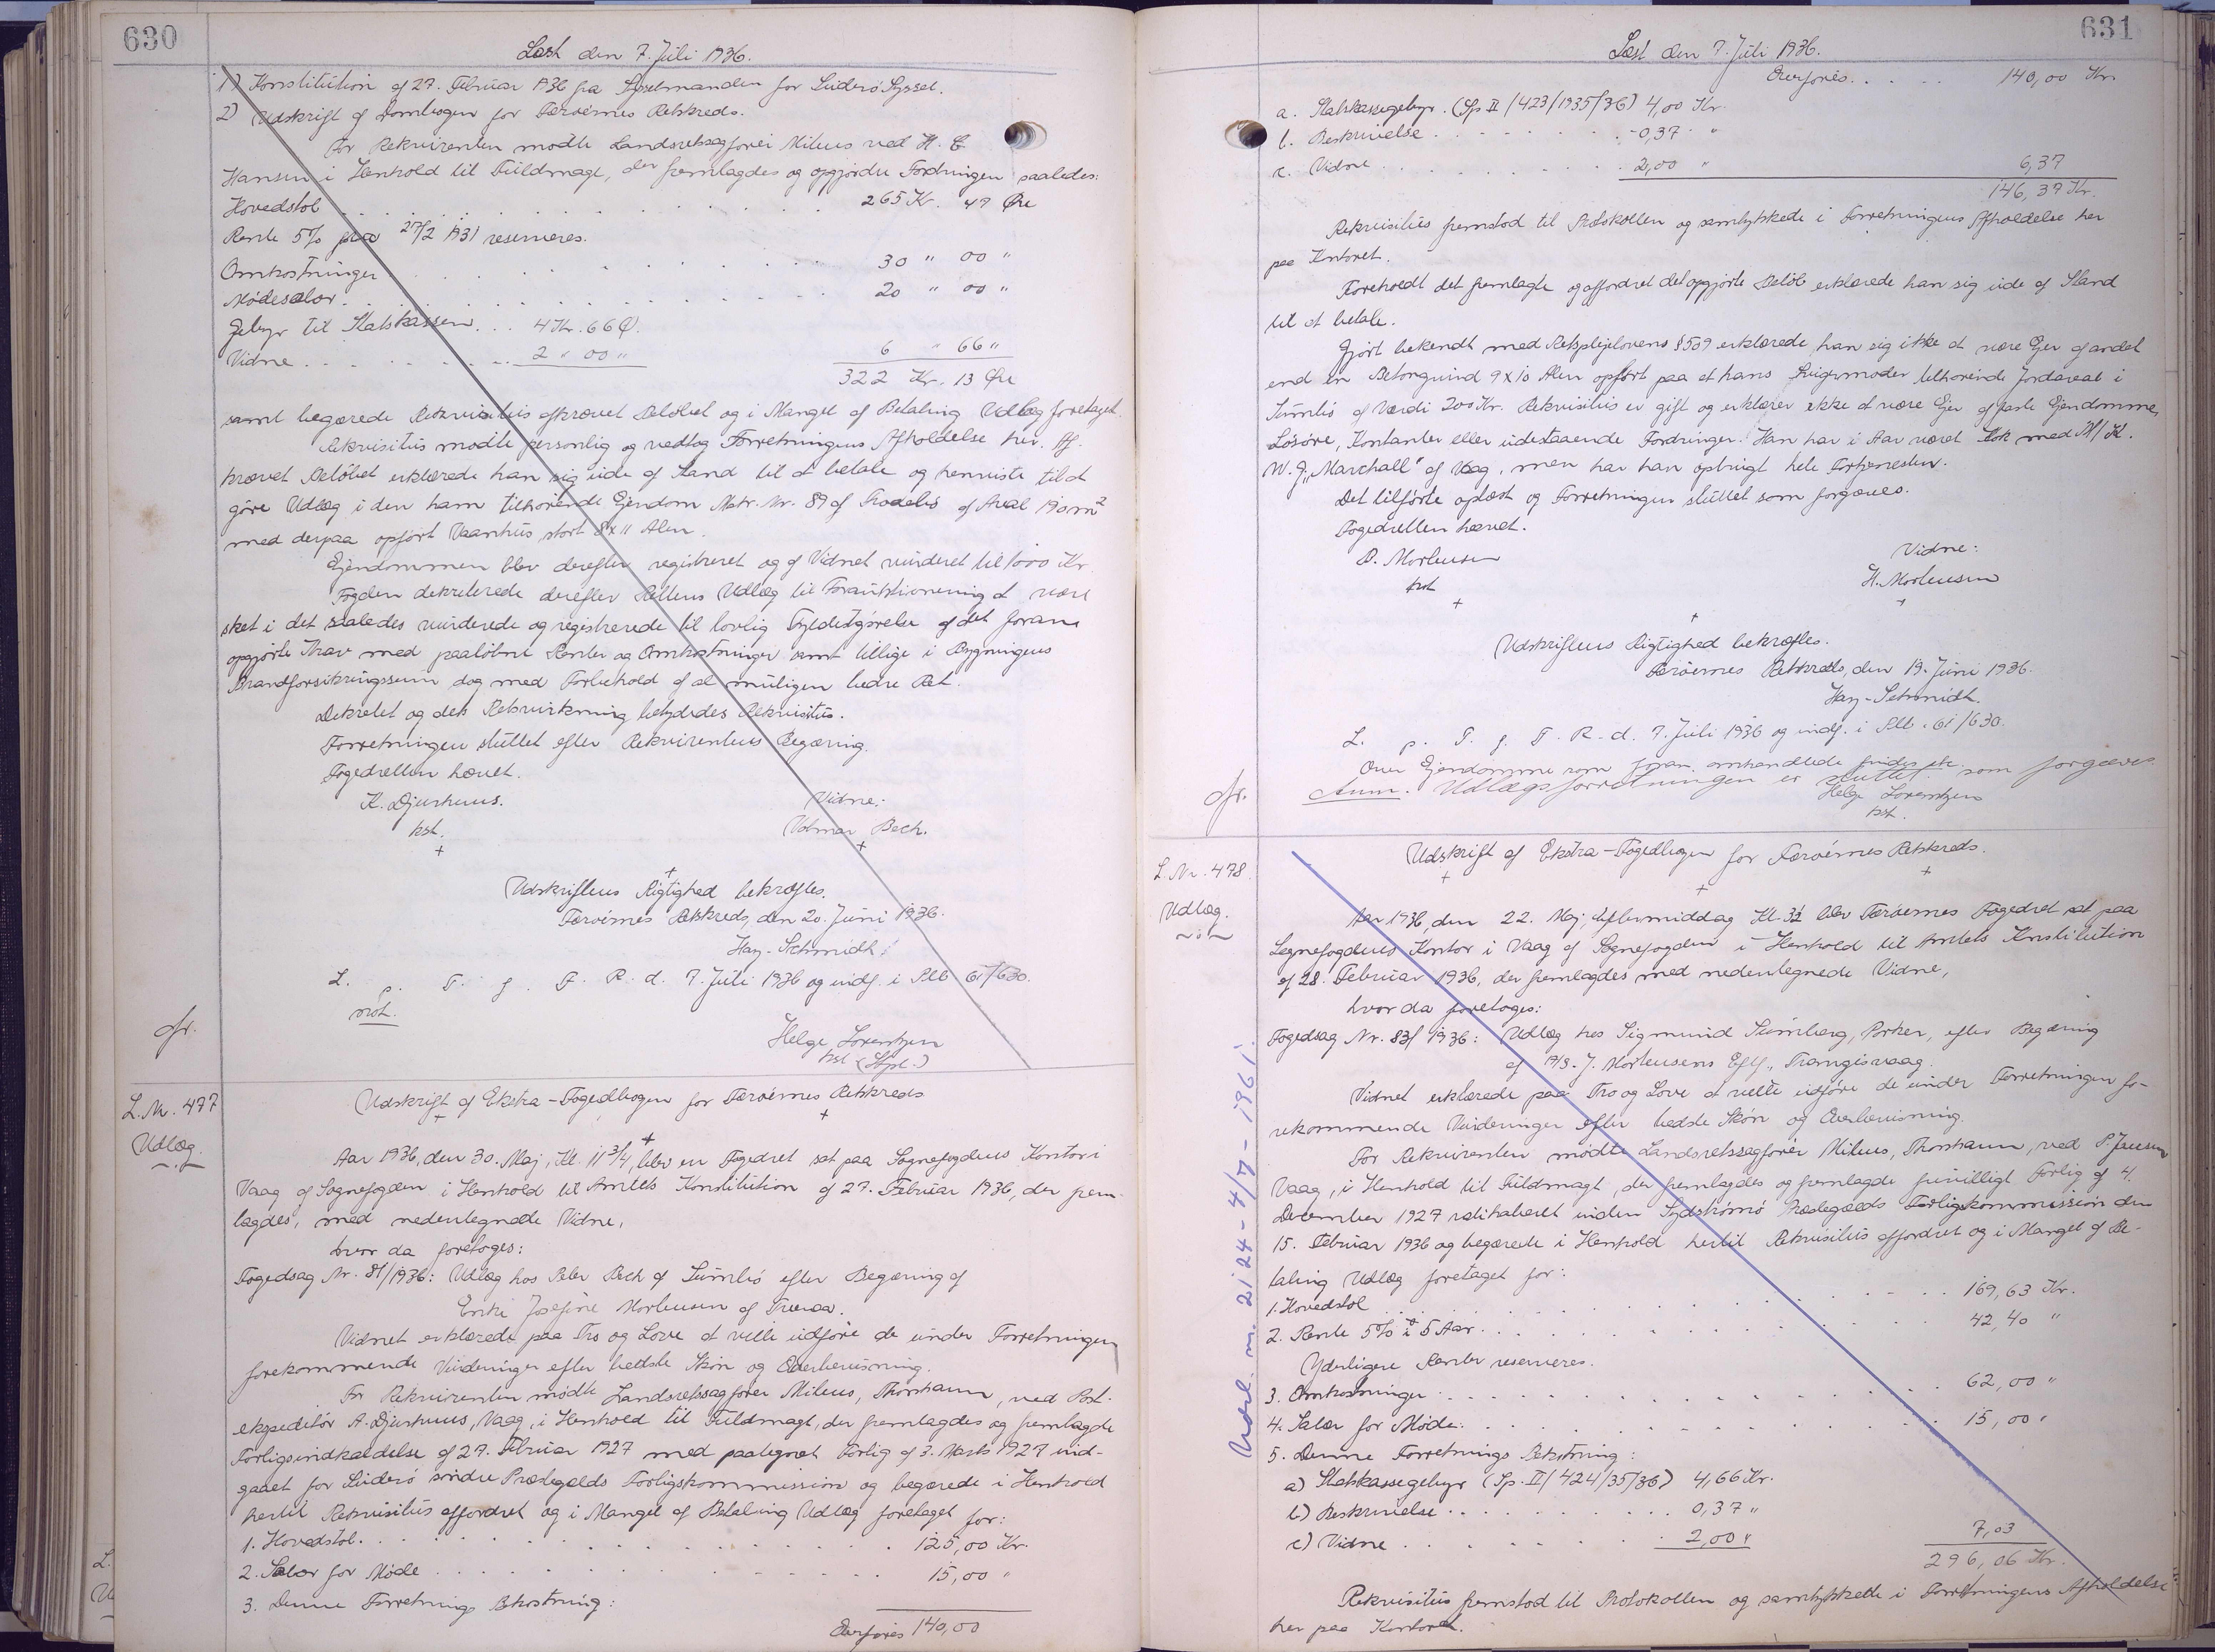 630
Læst den 7. Juli 1936.
1) Konstitution af 27. Februar 1936 fra Sysselmanden for Suderø Syssel.
2) Udskrift af Dombogen for Færøernes Retskreds.
For Rekvirenten mødte Landsretssagfører Milnes ved H. E
Hansen i Henhold til Fuldmagt, der fremlagdes og opgjorde Fordringen saaledes:
Hovedstol . . . 265 Kr. 47 Øre
Rente 5% fra 27/2 1931 reserveres.
Omkostninger . . . 30 " 00 "
Mødesalær . . . 20 " 00 "
Gebyr til Statskassen . . . 4 Kr. 66 Ø.
Vidne . . . 2 " 00 " 6 " 66 "
322 Kr. 13 Øre
samt begærede Rekvisitus afkrævet Beløbet og i Mangel af Betaling Udlæg foretaget.
Rekvisitus mødte personlig og vedtog Forretningens Afholdelse her. Af-
krævet Beløbet erklærede han sig ude af Stand til at betale og henviste til at
gøre Udlæg i den ham tilhørende Ejendom Matr. Nr. 89 af Frodebø af Areal 190 m²
med derpaa opført Vaanhus, stort 8 x 11 Alen.
Ejendommen blev derefter registreret og af Vidnet vurderet til 1000 Kr.
Fogden dekreterede derefter Rettens Udlæg til Forauktionering at være
sket i det saaledes vurderede og registrerede til lovlig Fyldestgørelse af det foran
opgjorte Krav med paaløbne Renter og Omkostninger samt tillige i Bygningens
Brandforsikringssum dog med Forbehold af al muligen bedre Ret.
Dekretet og dets Retsvirkning betydedes Rekvisitus.
Forretningen sluttet efter Rekvirentens Begæring.
Fogedretten hævet.
K. Djurhuus. Vidne:
kst. Volmar Bech.
Udskriftens Rigtighed bekræftes.
Færøernes Retskreds, den 20. Juni 1936.
Hay-Schmidt.
L. p. T. f. F. R. d. 7. Juli 1936 og indf. i Plb 61/630.
mst.
Helge Lorentzen
kst (Hpl.)
cfr.
L. Nr. 477
Udlæg.
Udskrift af Ekstra-Fogedbogen for Færøernes Retskreds
Aar 1936, den 30. Maj, Kl. 11 3/4, blev en Fogedret sat paa Sognefogdens Kontor i
Vaag af Sognefogden i Henhold til Amtets Konstitution af 27. Februar 1936, der frem-
lagdes, med nedentegnede Vidne,
hvor da foretoges:
Fogedsag Nr. 81/1936: Udlæg hos Peter Bech af Sumbø efter Begæring af
Enke Josefine Mortensen af Tværaa.
Vidnet erklærede paa Tro og Love at ville udføre de under Forretningen
forekommende Vurderinger efter bedste Skøn og Overbevisning.
For Rekvirenten mødte Landsretssagfører Milnes, Thorshavn, ved Post-
ekspeditør A. Djurhuus, Vaag, i Henhold til Fuldmagt, der fremlagdes og fremlagde
Forligsindkaldelse af 27. Februar 1927 med paategnet Forlig af 3. Marts 1927 ind-
gaaet for Suderø søndre Præstegælds Forligskommission og begærede i Henhold
hertil Rekvisitus affordret og i Mangel af Betaling Udlæg foretaget for:
1. Hovedstol . . . 125,00 Kr.
2. Salær for Møde . . . 15,00 "
3. Denne Forretnings Bekostning:
Overføres 140,00
631
Læst den 7. Juli 1936.
Overføres . . . 140,00 Kr
a. Statskassegebyr. (Sp II/423/1935/36) 4,00 Kr.
b. Beskrivelse . . . 0,37 "
c. Vidne . . . 2,00 " 6,37
146,37 Kr.
Rekvisitus fremstod til Protokollen og samtykkede i Forretningens Afholdelse her
paa Kontoret.
Foreholdt det fremlagte og affordret det opgjorte Beløb erklærede han sig ude af Stand
til at betale.
Gjort bekendt med Retsplejelovens § 509 erklærede han sig ikke at være Ejer af andet
end en Betongrund 9 x 10 Alen opført paa et hans Svigermoder tilhørende Jordareal i
Sumbø af Værdi 200 Kr. Rekvisitus er gift og erklærer ikke at være Ejer af faste Ejendomme,
Løsøre, Kontanter eller udestaaende Fordringer. Han har i Aar været Kok med M/K.
W. J. "Marchall" af Vaag, men har han opbrugt hele Fortjenesten.
Det tilførte oplæst og Forretningen sluttet som forgæves.
Fogedretten hævet.
D. Mortensen Vidne:
kst H. Mortensen
Udskriftens Rigtighed bekræftes.
Færøernes Retskreds, den 13. Juni 1936.
Hay-Schmidt.
L. p. T. f. F. R. d. 7. Juli 1936 og indf. i Plb. 61/630.
Over Ejendomme som foran omhandlede findes etc.
cfr. Anm. Udlægsforretningen er sluttet som forgæves
Helge Lorentzen
kst.
L. Nr. 478.
Udlæg.
Udskrift af Ekstra-Fogedbogen for Færøernes Retskreds.
Aar 1936, den 22. Maj, Eftermiddag Kl. 3½ blev Færøernes Fogedret sat paa
Sognefogdens Kontor i Vaag af Sognefogden i Henhold til Amtets Konstitution
af 28. Februar 1936, der fremlagdes med nedentegnede Vidne,
hvor da foretoges:
Fogedsag Nr. 83/1936: Udlæg hos Sigmund Sumberg, Porkeri, efter Begæring
af A/S. J. Mortensens Eftf., Trangisvaag.
Vidnet erklærede paa Tro og Love at ville udføre de under Forretningen fo-
rekommende Vurderinger efter bedste Skøn og Overbevisning.
For Rekvirenten mødte Landsretssagfører Milnes, Thorshavn, ved P. Jensen
Vaag, i Henhold til Fuldmagt, der fremlagdes og fremlagde frivilligt Forlig af 4.
December 1927 ratihaberet inden Sydstrømø Præstegælds Forligskommission den
15. Februar 1936 og begærede i Henhold hertil Rekvisitus affordret og i Mangel af Be-
taling Udlæg foretaget for:
1. Hovedstol . . . 169,63 Kr.
2. Rente 5% i 5 Aar . . . 42,40 "
Yderligere Renter reserveres.
3. Omkostninger . . . 62,00 "
4. Salær for Møde . . . 15,00 "
5. Denne Forretnings Bekostning:
a) Statskassegebyr (Sp. II/424/35/36) 4,66 Kr.
b) Beskrivelse . . . 0,37 "
c) Vidne . . . 2,00 " 7,03
296,06 Kr.
Rekvisitus fremstod til Protokollen og samtykkede i Forretningens Afholdelse
her paa Kontoret.
2124 - 4/7 - 1961.